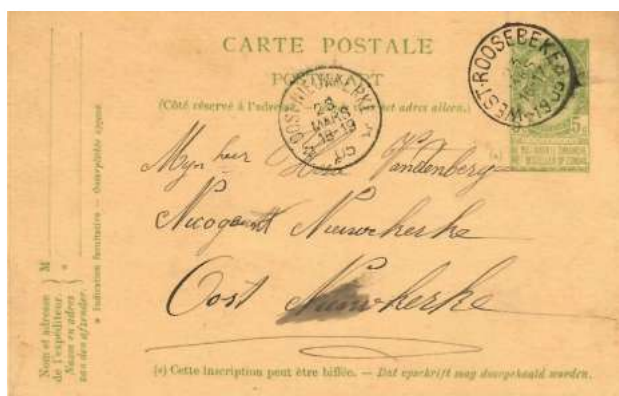 CARTE POSTALE
POSTKAART
(Côté réservé à l'adresse. adres alleen.)
WEST-ROOSEBEKE
1905
OOSTNIEUWKERKE
28
MARS
18-19
05
5c
Mijn heer Vandenberg
(*)
Nieuwkerke
Oost Nieuwkerke
(*) Cette inscription peut être biffée. — Dat opschrift mag doorgehaald worden.
M
Nom et adresse
de l'expéditeur.
Naam en adres
van den afzender.
* Indication facultative — Onverplichte opgave